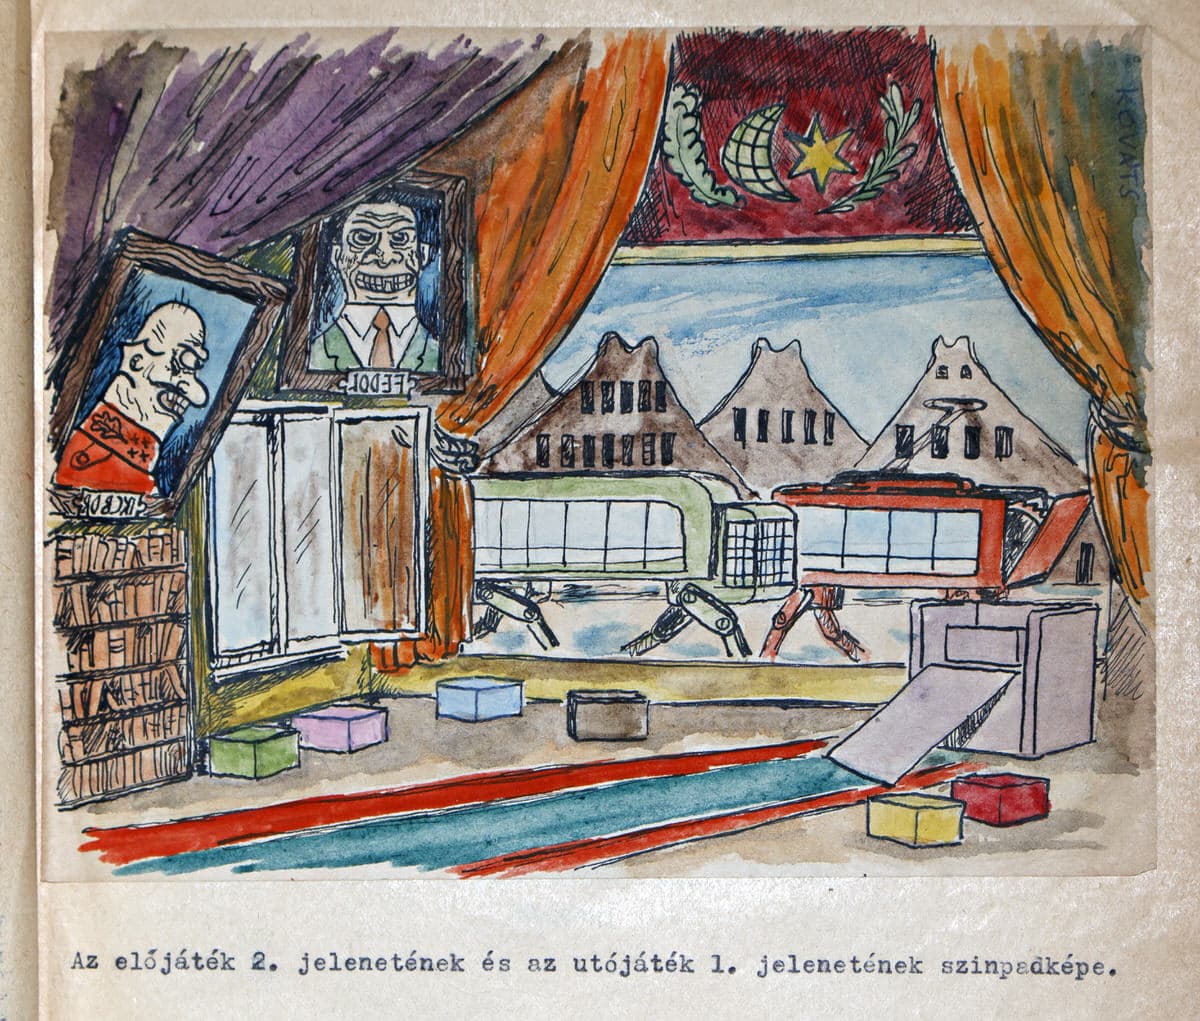 KOVÁTS
Az előjáték 2. jelenetének és az utójáték 1. jelenetének szinpadképe.